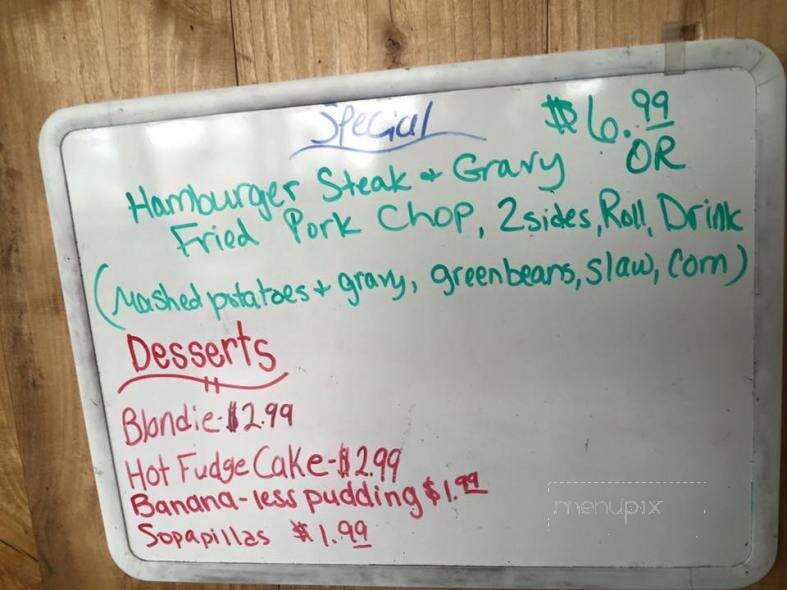 Special $6.99
Hamburger Steak + Gravy OR
Fried Pork Chop, 2 sides, Roll, Drink
(Mashed potatoes + gravy, green beans, slaw, Corn)
Desserts
Blondie-$2.99
Hot Fudge Cake-$2.99
Banana-less pudding $1.99
Sopapillas $1.99
menupix